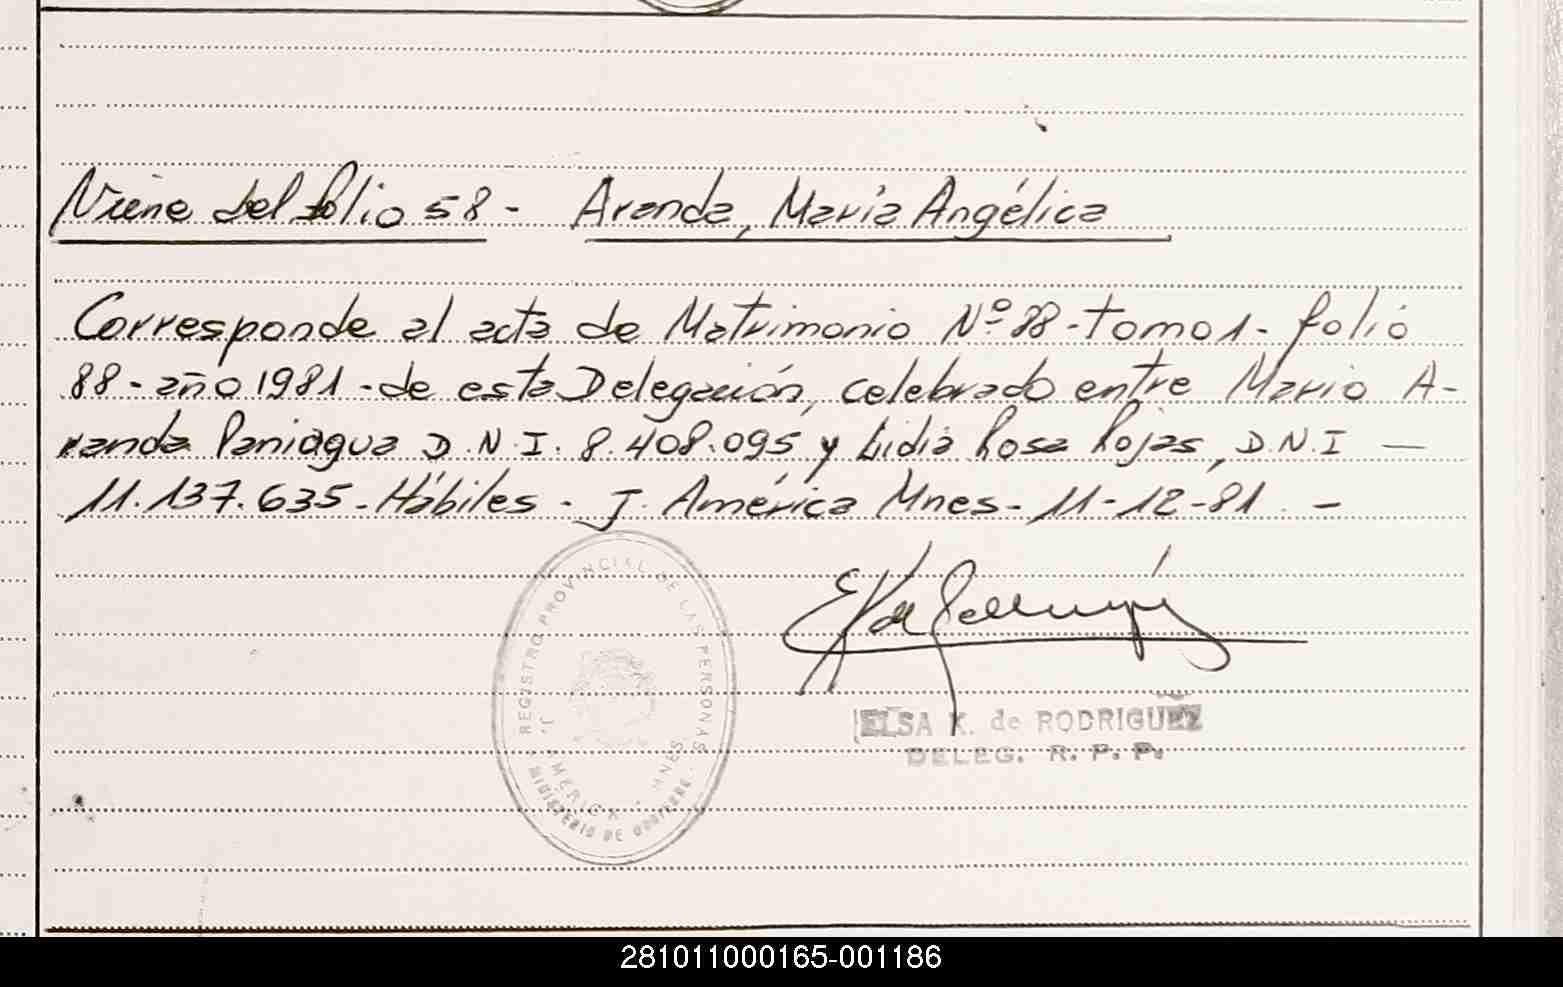 Viene del folio 58 - Aranda, María Angélica
Corresponde al acta de Matrimonio Nº 88 - tomo 1 - folio
88 - año 1981 - de esta Delegación, celebrado entre Mario A-
randa Paniagua D.N.I. 8.408.095 y Lidia Rosa Rojas, D.N.I —
11.137.635 - Hábiles - J. América Mnes - 11-12-81. -
REGISTRO PROVINCIAL DE LAS PERSONAS
J. AMERICA - MNES
MINISTERIO DE GOBIERNO
ELSA K. de RODRIGUEZ
DELEG. R. P. P.
281011000165-001186